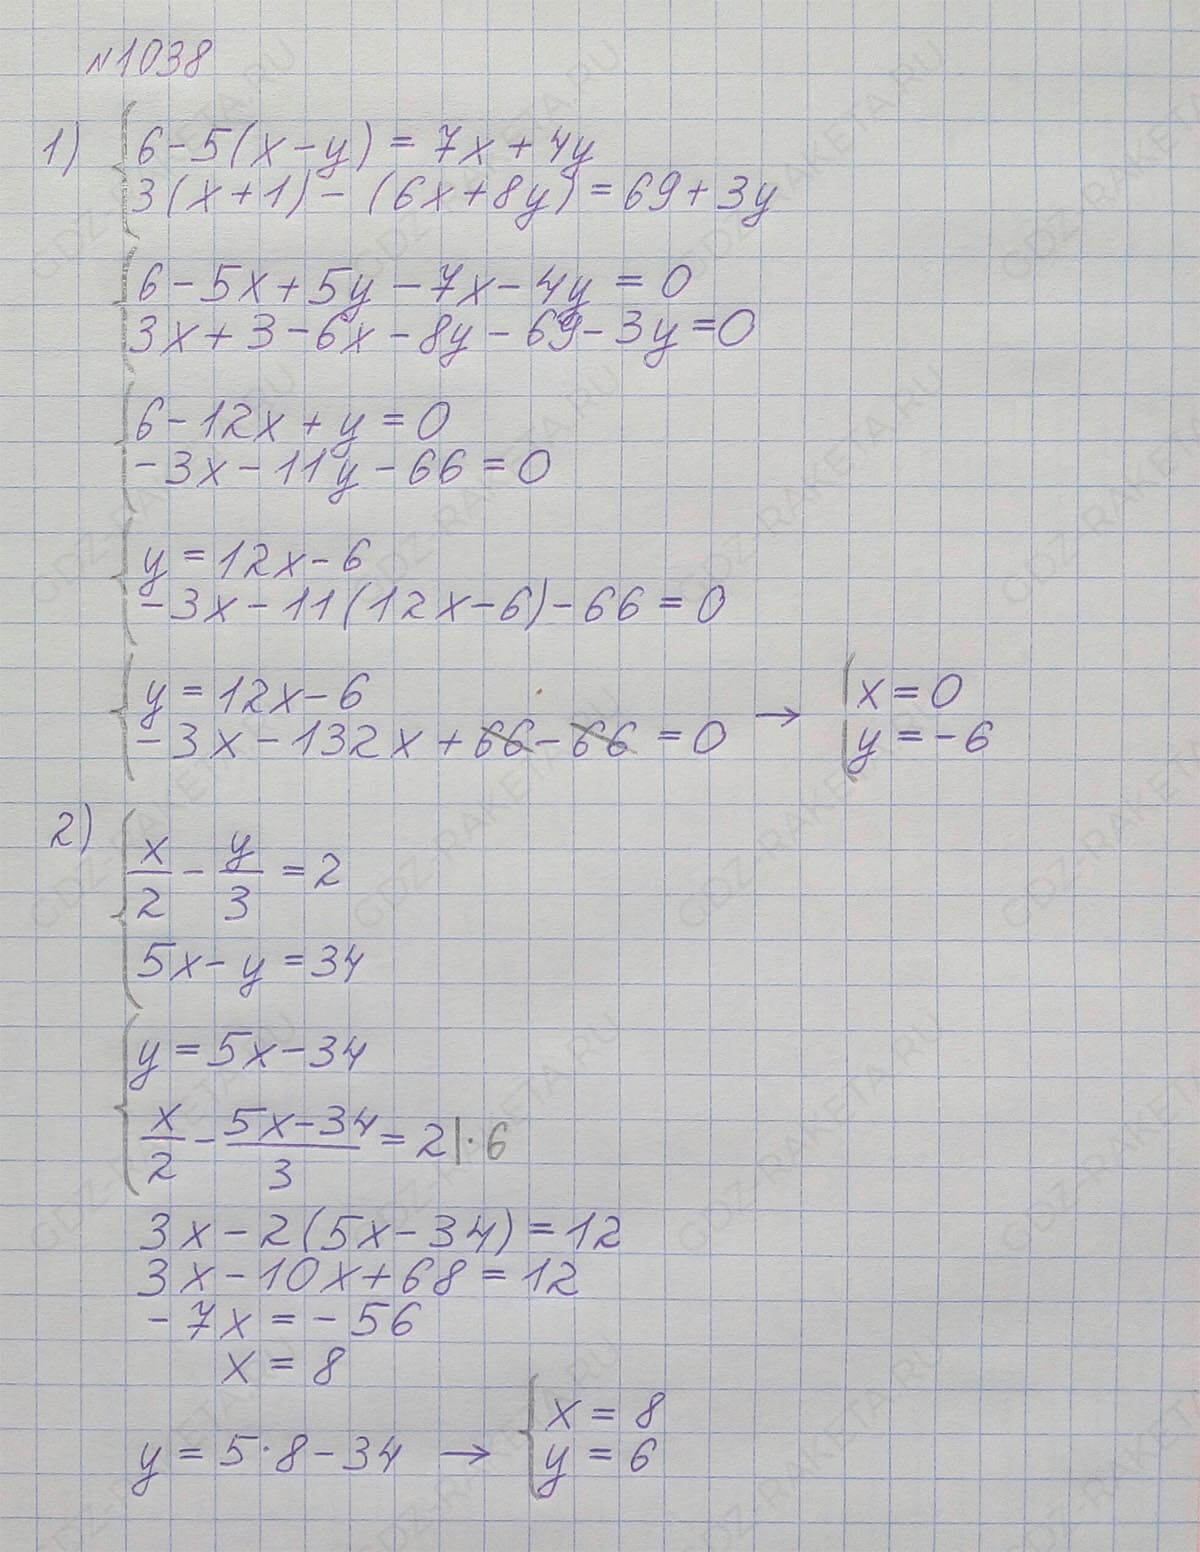 №1038
1) 6-5(x-y)=7x+4y
3(x+1)-(6x+8y)=69+3y
6-5x+5y-7x-4y=0
3x+3-6x-8y-69-3y=0
6-12x+y=0
-3x-11y-66=0
y=12x-6
-3x-11(12x-6)-66=0
y=12x-6
-3x-132x+66-66=0 → x=0
y=-6
2) x/2 - y/3 = 2
5x-y=34
y=5x-34
x/2 - (5x-34)/3 = 2 |·6
3x-2(5x-34)=12
3x-10x+68=12
-7x=-56
x=8
y=5·8-34 → x=8
y=6
GDZ-RAKETA.RU